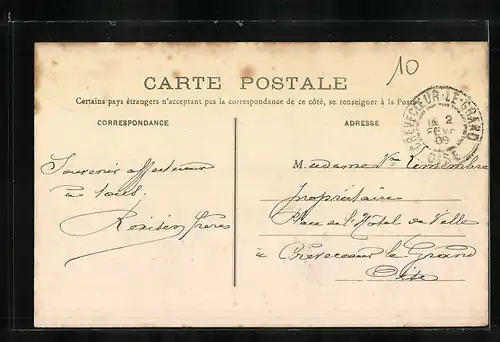 10
CARTE POSTALE
Certains pays étrangers n'acceptant pas la correspondance de ce côté, se renseigner à la Poste
CORRESPONDANCE
ADRESSE
CREVECŒUR-LE-GRAND
2
FEVR
09
OISE
Souvenir affectueux
à tous.
frères
Madame Vve
propriétaire
Place de l'Hôtel de Ville
à Crevecœur le Grand
Oise